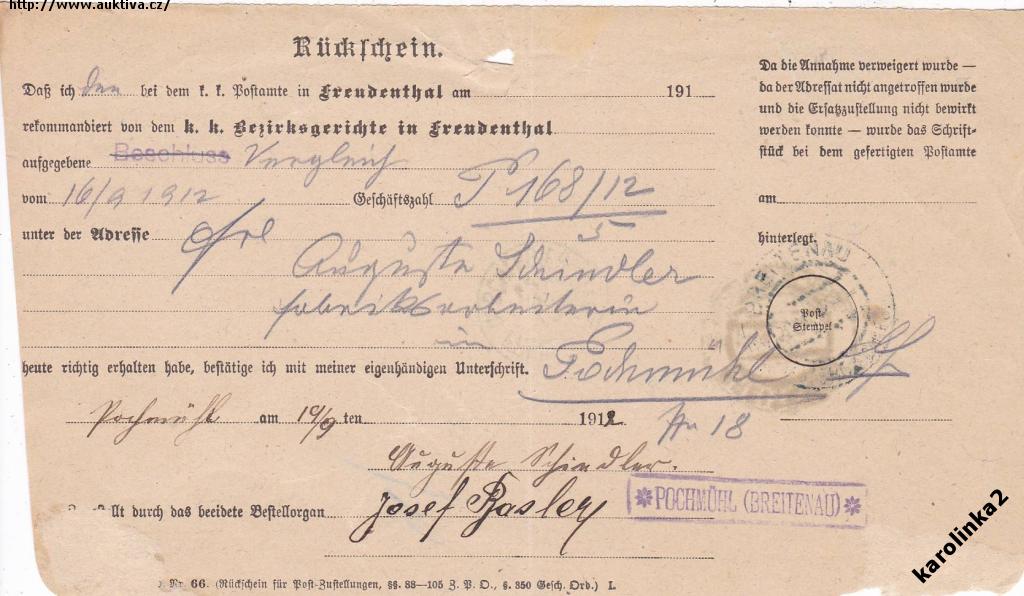 http://www.auktiva.cz/
Rückschein.
Daß ich den bei dem k. k. Postamte in Freudenthal am 191
rekommandiert von dem k. k. Bezirksgerichte in Freudenthal
aufgegebene Beschluss Vergleich
vom 16/9 1912 Geschäftszahl P 168/12
5
unter der Adresse
Auguste Schindler
Fabriksarbeiterin
in
heute richtig erhalten habe, bestätige ich mit meiner eigenhändigen Unterschrift. Pochmühl
Pochmühl am 19/9 ten 1912
18
Auguste Schindler.
durch das beeidete Bestellorgan Josef Basler
Nr. 66. (Rückschein für Post-Zustellungen, §§. 88—105 Z. P. O., §. 350 Gesch. Ord.) L.
Da die Annahme verweigert wurde —
da der Adressat nicht angetroffen wurde
und die Ersatzzustellung nicht bewirkt
werden konnte — wurde das Schrift-
stück bei dem gefertigten Postamte
am
hinterlegt.
BREITENAU
Post-
Stempel
POCHMÜHL (BREITENAU)
karolinka2